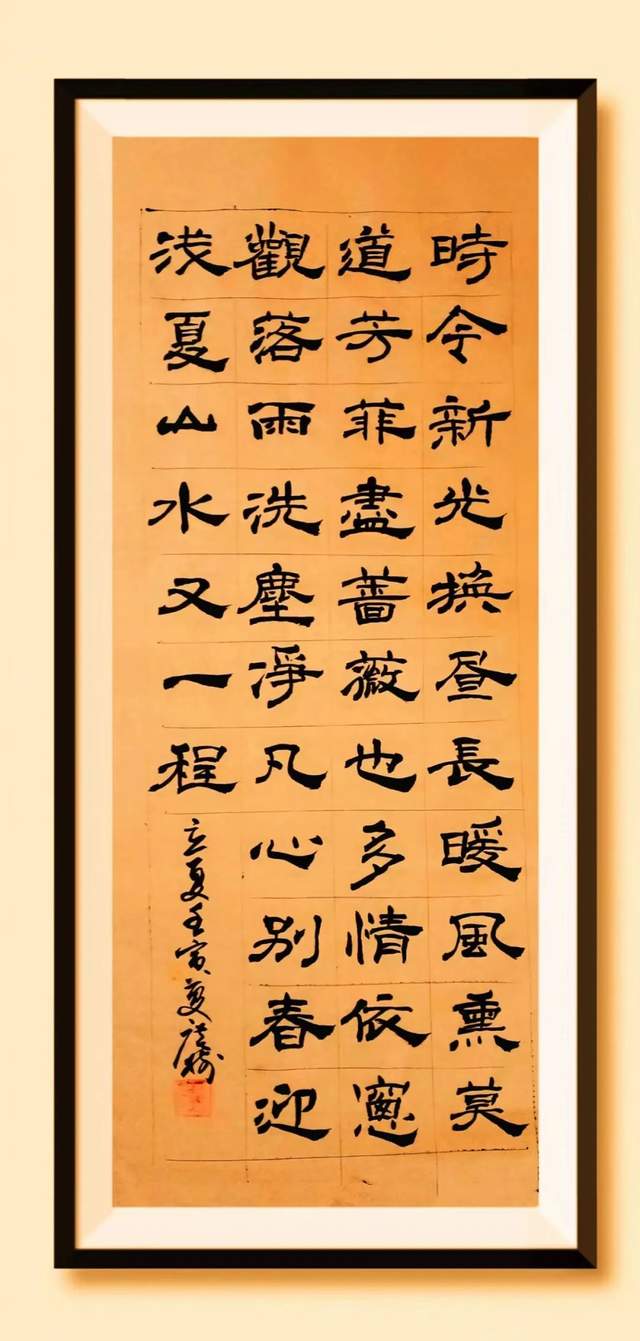 時令新光換昼長暖風熏莫
道芳菲盡薔薇也多情依窻
觀落雨洗塵凈凡心別春迎
浅夏山水又一程
立夏壬寅夏